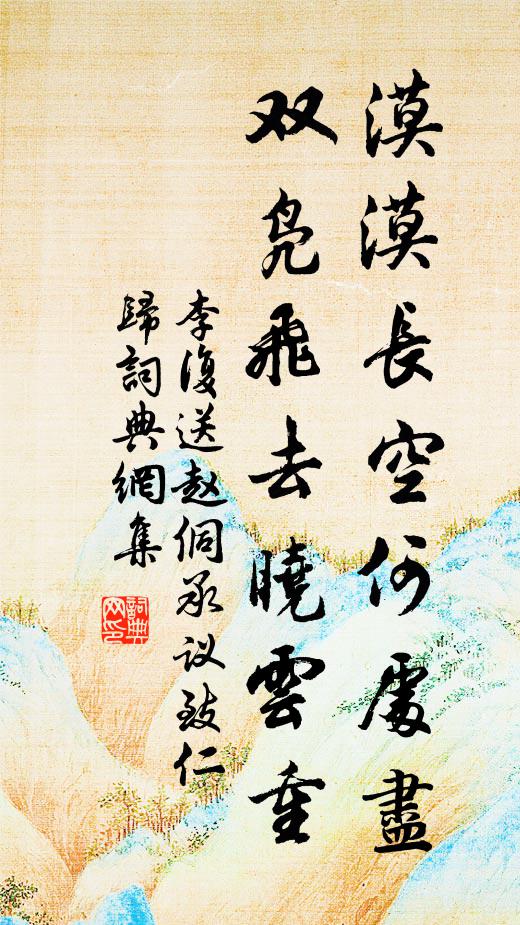 漠漠長空何處盡
双凫飛去曉雲重
李復送赵侗承议致仁
歸詞典網集
詞典
网印